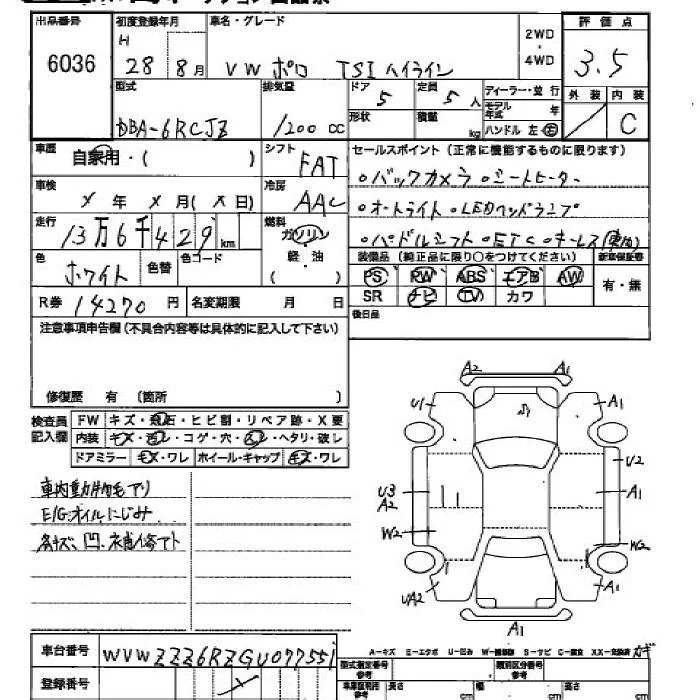 出品番号 初度登録年月 車名・グレード 2WD・4WD 評価点
6036 H 28 8月 VW ポロ TSI ハイライン 3.5
型式 排気量 ドア 5 定員 5人 ディーラー・並行 外装 内装
DBA-6RCJZ 1200 CC 形状 積載 kg モデル年式 年 ハンドル 左・右 C
車歴 自家用・( ) シフト FAT セールスポイント(正常に機能するものに限ります)
車検 メ年 メ月(メ日) 冷房 AAC
。バックカメラ 。シートヒーター
。オートライト 。LEDヘッドランプ
走行 13万6千429km 燃料 ガソリン・軽・油 ( )
。パドルシフト 。ETC 。キーレス
色 ホワイト 色替 色コード
装備品(純正品に限り○をつけてください) 新車保証書
PS・PW・ABS・エアB・AW 有・無
SR ナビ TV カワ
R券 14270円 名変期限 月 日
後日品
注意事項申告欄(不具合内容等は具体的に記入して下さい)
修復歴 有 (箇所 )
検査員記入欄 FW キズ・飛石・ヒビ割・リペア跡・X要
内装 キズ・汚レ・コゲ・穴・スレ・ヘタリ・破レ
ドアミラー キズ・ワレ ホイール・キャップ キズ・ワレ
車内動物毛アリ
E/Gオイルにじみ
各キズ、凹、補修アト
A2 A1
U1 A1
U2
U3 A2 A1
W2 W2
UA2 A1
A1
A-キズ E-エクボ U-凹み W-補修跡 S-サビ C-腐食 XX-交換済 カギ
車台番号 WVWZZZ6RZGU077551
登録番号
型式指定番号 参考 類別区分番号 参考
車庫証明用 参考 長さ cm 幅 cm 高さ cm